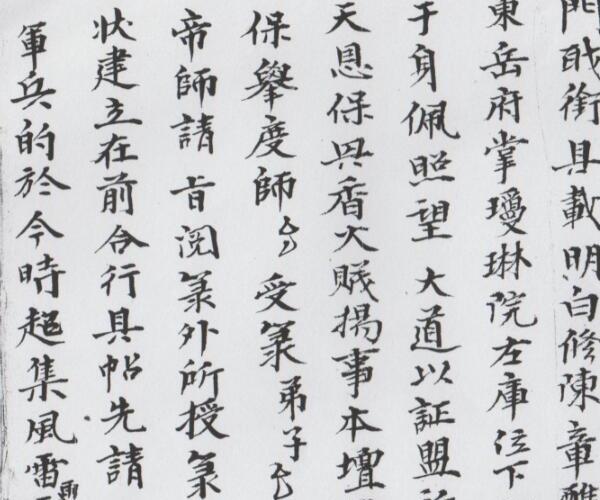 門職銜具載明白修陳章醮
東岳府掌瓊琳院左庫位下
于身佩照望大道以証盟
天恩保具香火賤揚事本壇
保舉度師 受籙弟子
帝師請旨閱籙外所授籙
狀建立在前合行具帖先請
軍兵的於今時超集風雷